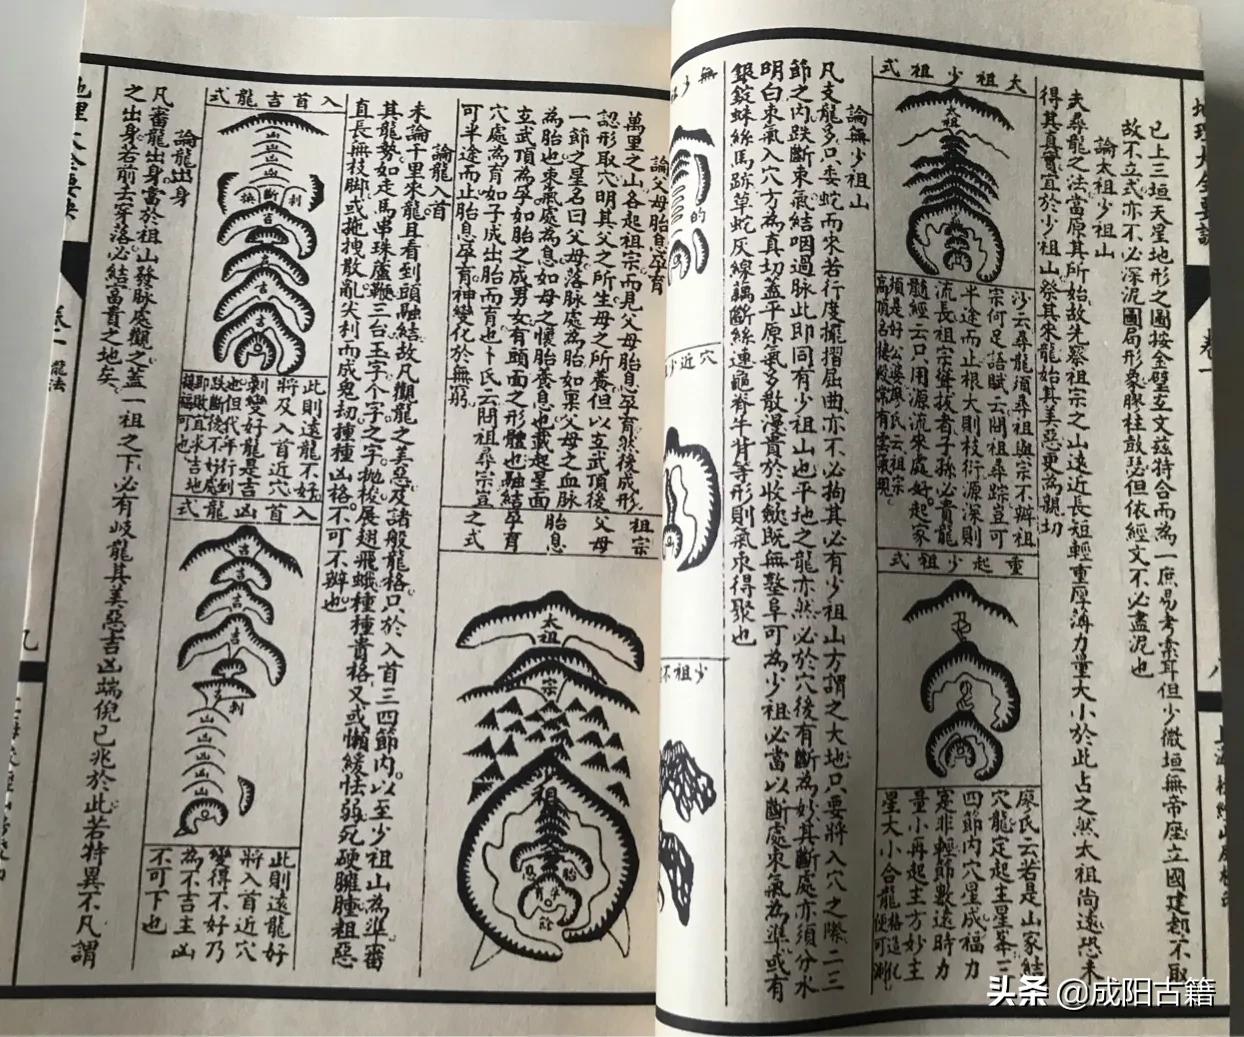 地理大全要訣
卷一
八
已上三垣天星地形之圖按金壁玄文茲特合而為一庶易考索耳但少微垣無帝座立國建都不取
故不立式亦不必深泥圖局形象膠柱鼓瑟但依經文不必盡泥也
論太祖少祖山
夫尋龍之法當原其所始故先察祖宗之山遠近長短輕重厚薄力量大小於此占之然太祖尚遠恐未
得其真實宜於少祖山祭其來龍始其美惡更為親切
太祖少祖式
太祖
沙云尋龍須尋祖與宗不辨祖
宗何足語賦云問祖尋踪豈可
半途而止根大則枝衍源深則
流長祖宗聳拔者子孫必貴龍
髓經云只用源流來處好起家
須是好公婆廖氏云祖宗
高頂名樓殿常有雲氣現
重起少祖式
廖氏云若是山家結
穴龍定起主星峯二三
四節內穴星成福力
寔非輕節數遠時力
量小再起主方妙主
星大小合龍格造化
便可測
論無少祖山
凡支龍多只委蛇而來若行度擺摺屈曲亦不必拘其必有少祖山方謂之大地只要將入穴之際二三
節之內跌斷束氣結咽過脉此即同有少祖山也平地之龍亦然必於穴後有斷為妙其斷處亦須分水
明白束氣入穴方為真切蓋平原氣多散漫貴於收斂既無墼阜可為少祖必當以斷處束氣為準或有
銀錠蛛絲馬跡草蛇灰線藕斷絲連龜脊牛背等形則氣來得聚也
無少
的
穴近少
少祖不
論父母胎息孕育
萬里之山各起祖宗而見父母胎息孕育然後成形
認形取穴明其父之所生母之所養但以玄武頂後
一節之星名曰父母落脉處為胎如稟父母之血脉
為胎也束氣處為息如母之懷胎養息也武起星面
玄武頂為孕如胎之成男女有頭面之形體也融結
穴處為育如子成出胎而育也卜氏云問祖尋宗豈
可半途而止胎息孕育神變化於無窮
祖宗
父母
胎息
孕育
之式
太祖
宗
祖
胎
息
孕
育
論龍入首
未論千里來龍且看到頭融結故凡觀龍之美惡及諸般龍格只於入首三四節內以至少祖山為準審
其龍勢如走馬串珠蘆鞭三台玉字个字之字拋梭展翅飛蛾種種貴格又或懶緩怯弱死硬臃腫粗惡
直長無枝脚或拖拽散亂尖利而成鬼劫種種凶格不可不辨也
入首吉龍式
山
山
山
山
換
斷
剥
吉
吉
吉
吉
吉
此則遠龍不好
將及入首近穴
剥變好龍是吉
也但代年行到
跌斷後不好處
即敗宜求吉地
接福可也
入首凶龍式
吉
吉
吉
吉
剥
山
山
山
山
山
此則遠龍好
將入首近穴
變得不好乃
為不吉主凶
不可下也
論龍出身
凡審龍出身當於祖山發脉處觀之蓋一祖之下必有歧龍其美惡吉凶端倪已兆於此若特異不凡謂
之出身若前去穿落必結富貴之地矣
地理大全要訣
卷一
龍法
九
头条 @成阳古籍